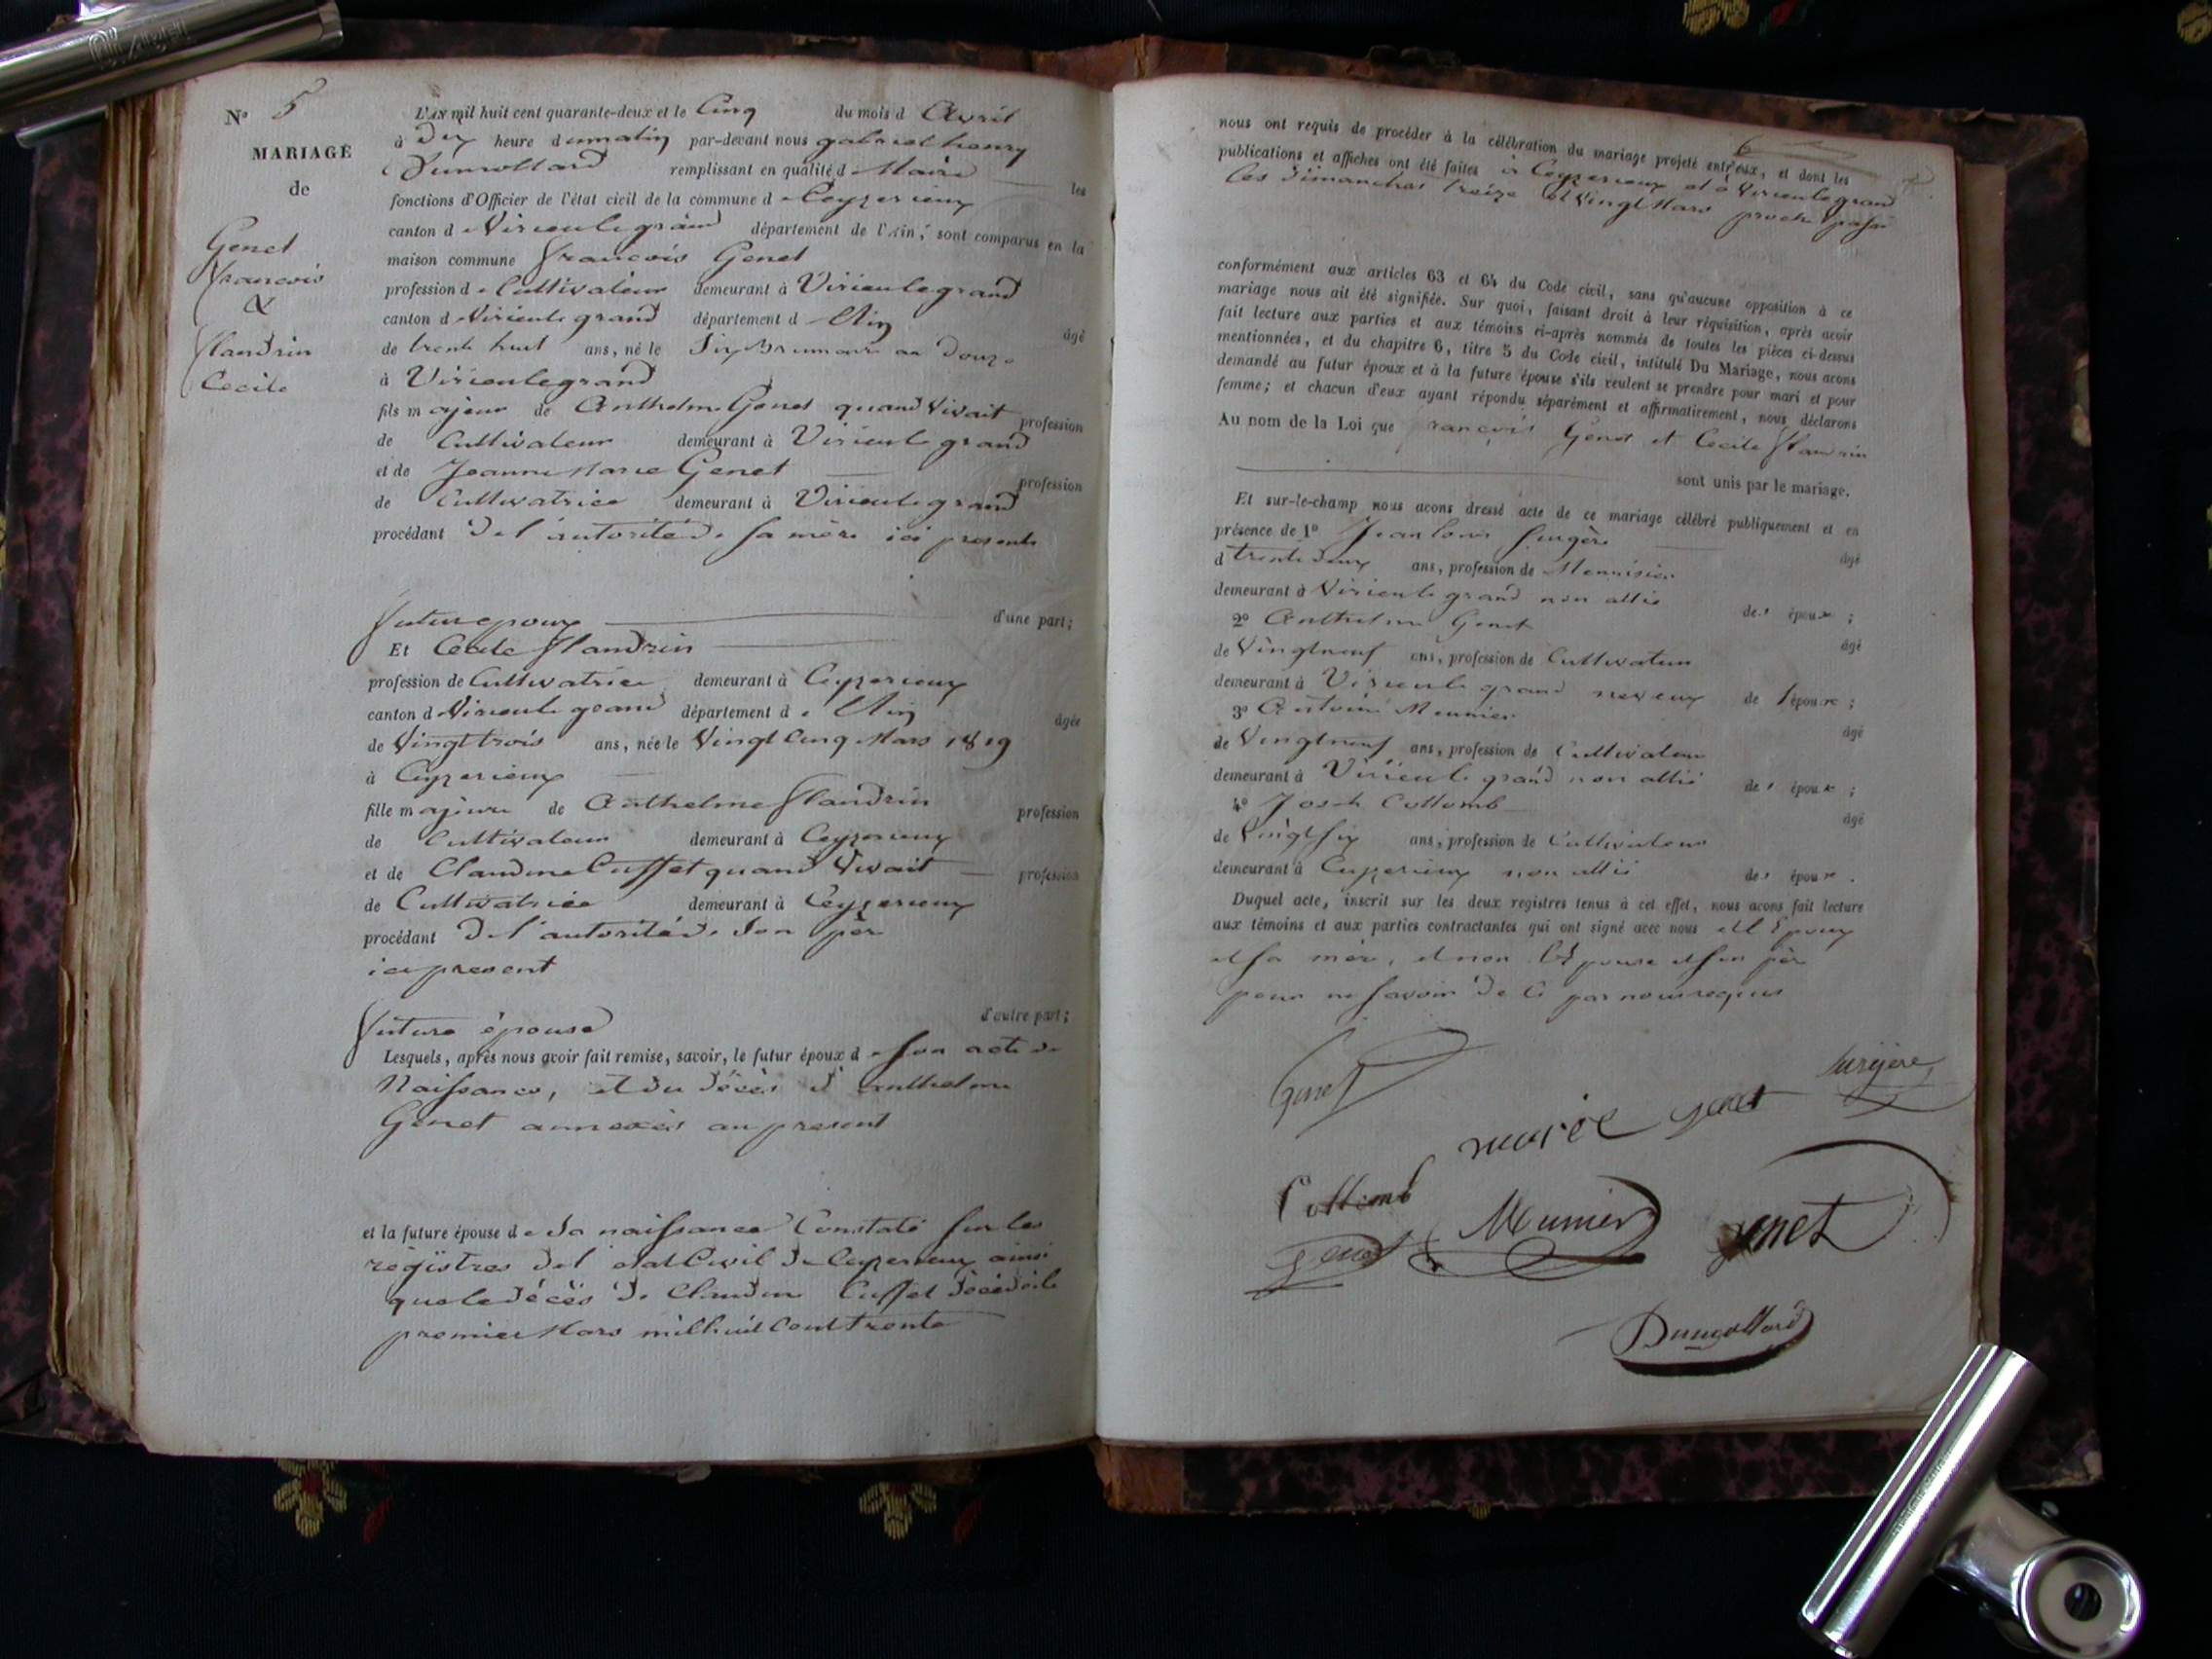 N° 5
MARIAGE
de
Genet
francois
&
flandrin
Cecile
L'AN mil huit cent quarante-deux et le Cinq du mois d Avril
à Dix heure d umatin par-devant nous gabriel henry
Dumollard remplissant en qualité d e Maire les
fonctions d'Officier de l'état civil de la commune d e Ceyzerieux
canton d e Virieulegrand département de l'Ain, sont comparus en la
maison commune francois Genet
profession d e Cultivateur demeurant à Virieulegrand
canton d e Virieule grand département d e l'Ain âgé
de trente huit ans, né le Six Brumaire an Douze
à Virieulegrand
fils m ajeur de Anthelme Genet quand Vivait profession
de Cultivateur demeurant à Virieule grand
et de Jeanne Marie Genet profession
de Cultivatrice demeurant à Virieule grand
procédant De l'autorité De sa mère ici presente
futur epoux d'une part;
Et Cecile flandrin
profession de Cultivatrice demeurant à Ceyzerieux
canton d e Virieule grand département d e l'Ain âgée
de Vingt trois ans, née le Vingt Cinq Mars 1819
à Ceyzerieux
fille m ajeure de Anthelme flandrin profession
de Cultivateur demeurant à Ceyzerieux
et de Claudine Cusset quand Vivait profession
de Cultivatrice demeurant à Ceyzerieux
procédant De l'autorité De Son père
ici present
future épouse d'autre part;
Lesquels, après nous avoir fait remise, savoir, le futur époux d e son acte de
Naissance, et du décès d' anthelme
Genet annexés au present
et la future épouse d e Sa naissance Constaté sur les
régistres de l'état Civil De Ceyzerieux ainsi
que le décès De Claudine Cusset Décédée le
premier Mars mil huit Cent trente
6
nous ont requis de procéder à la célébration du mariage projeté entr'eux, et dont les
publications et affiches ont été faites à Ceyzerieux et à Virieule grand
les Dimanches treize et Vingt Mars proche passé
conformément aux articles 63 et 64 du Code civil, sans qu'aucune opposition à ce
mariage nous ait été signifiée. Sur quoi, faisant droit à leur réquisition, après avoir
fait lecture aux parties et aux témoins ci-après nommés de toutes les pièces ci-dessus
mentionnées, et du chapitre 6, titre 5 du Code civil, intitulé Du Mariage, nous avons
demandé au futur époux et à la future épouse s'ils veulent se prendre pour mari et pour
femme; et chacun d'eux ayant répondu séparément et affirmativement, nous déclarons
Au nom de la Loi que françois Genet et Cecile flandrin
sont unis par le mariage.
Et sur-le-champ nous avons dressé acte de ce mariage célébré publiquement et en
présence de 1° Jean louis Surgère âgé
d trente Deux ans, profession de Menuisier
demeurant à Virieule grand non allié des époux ;
2° Anthelme Genet âgé
de Vingtneuf ans, profession de Cultivateur
demeurant à Virieule grand neveux de l'époux ;
3° Antoine Meunier âgé
de Vingtneuf ans, profession de Cultivateur
demeurant à Virieule grand non allié des époux ;
4° Joseh Collomb âgé
de Vingtsix ans, profession de Cultivateur
demeurant à Ceyzerieux non allié des époux .
Duquel acte, inscrit sur les deux registres tenus à cet effet, nous avons fait lecture
aux témoins et aux parties contractantes qui ont signé avec nous et l'Epoux
et sa mère, et non l'Epouse et son père
pour ne savoir De ce par nous requis
Genet
Surgère
marie genet
Collomb
Meunier
genet
genet
Dumollard